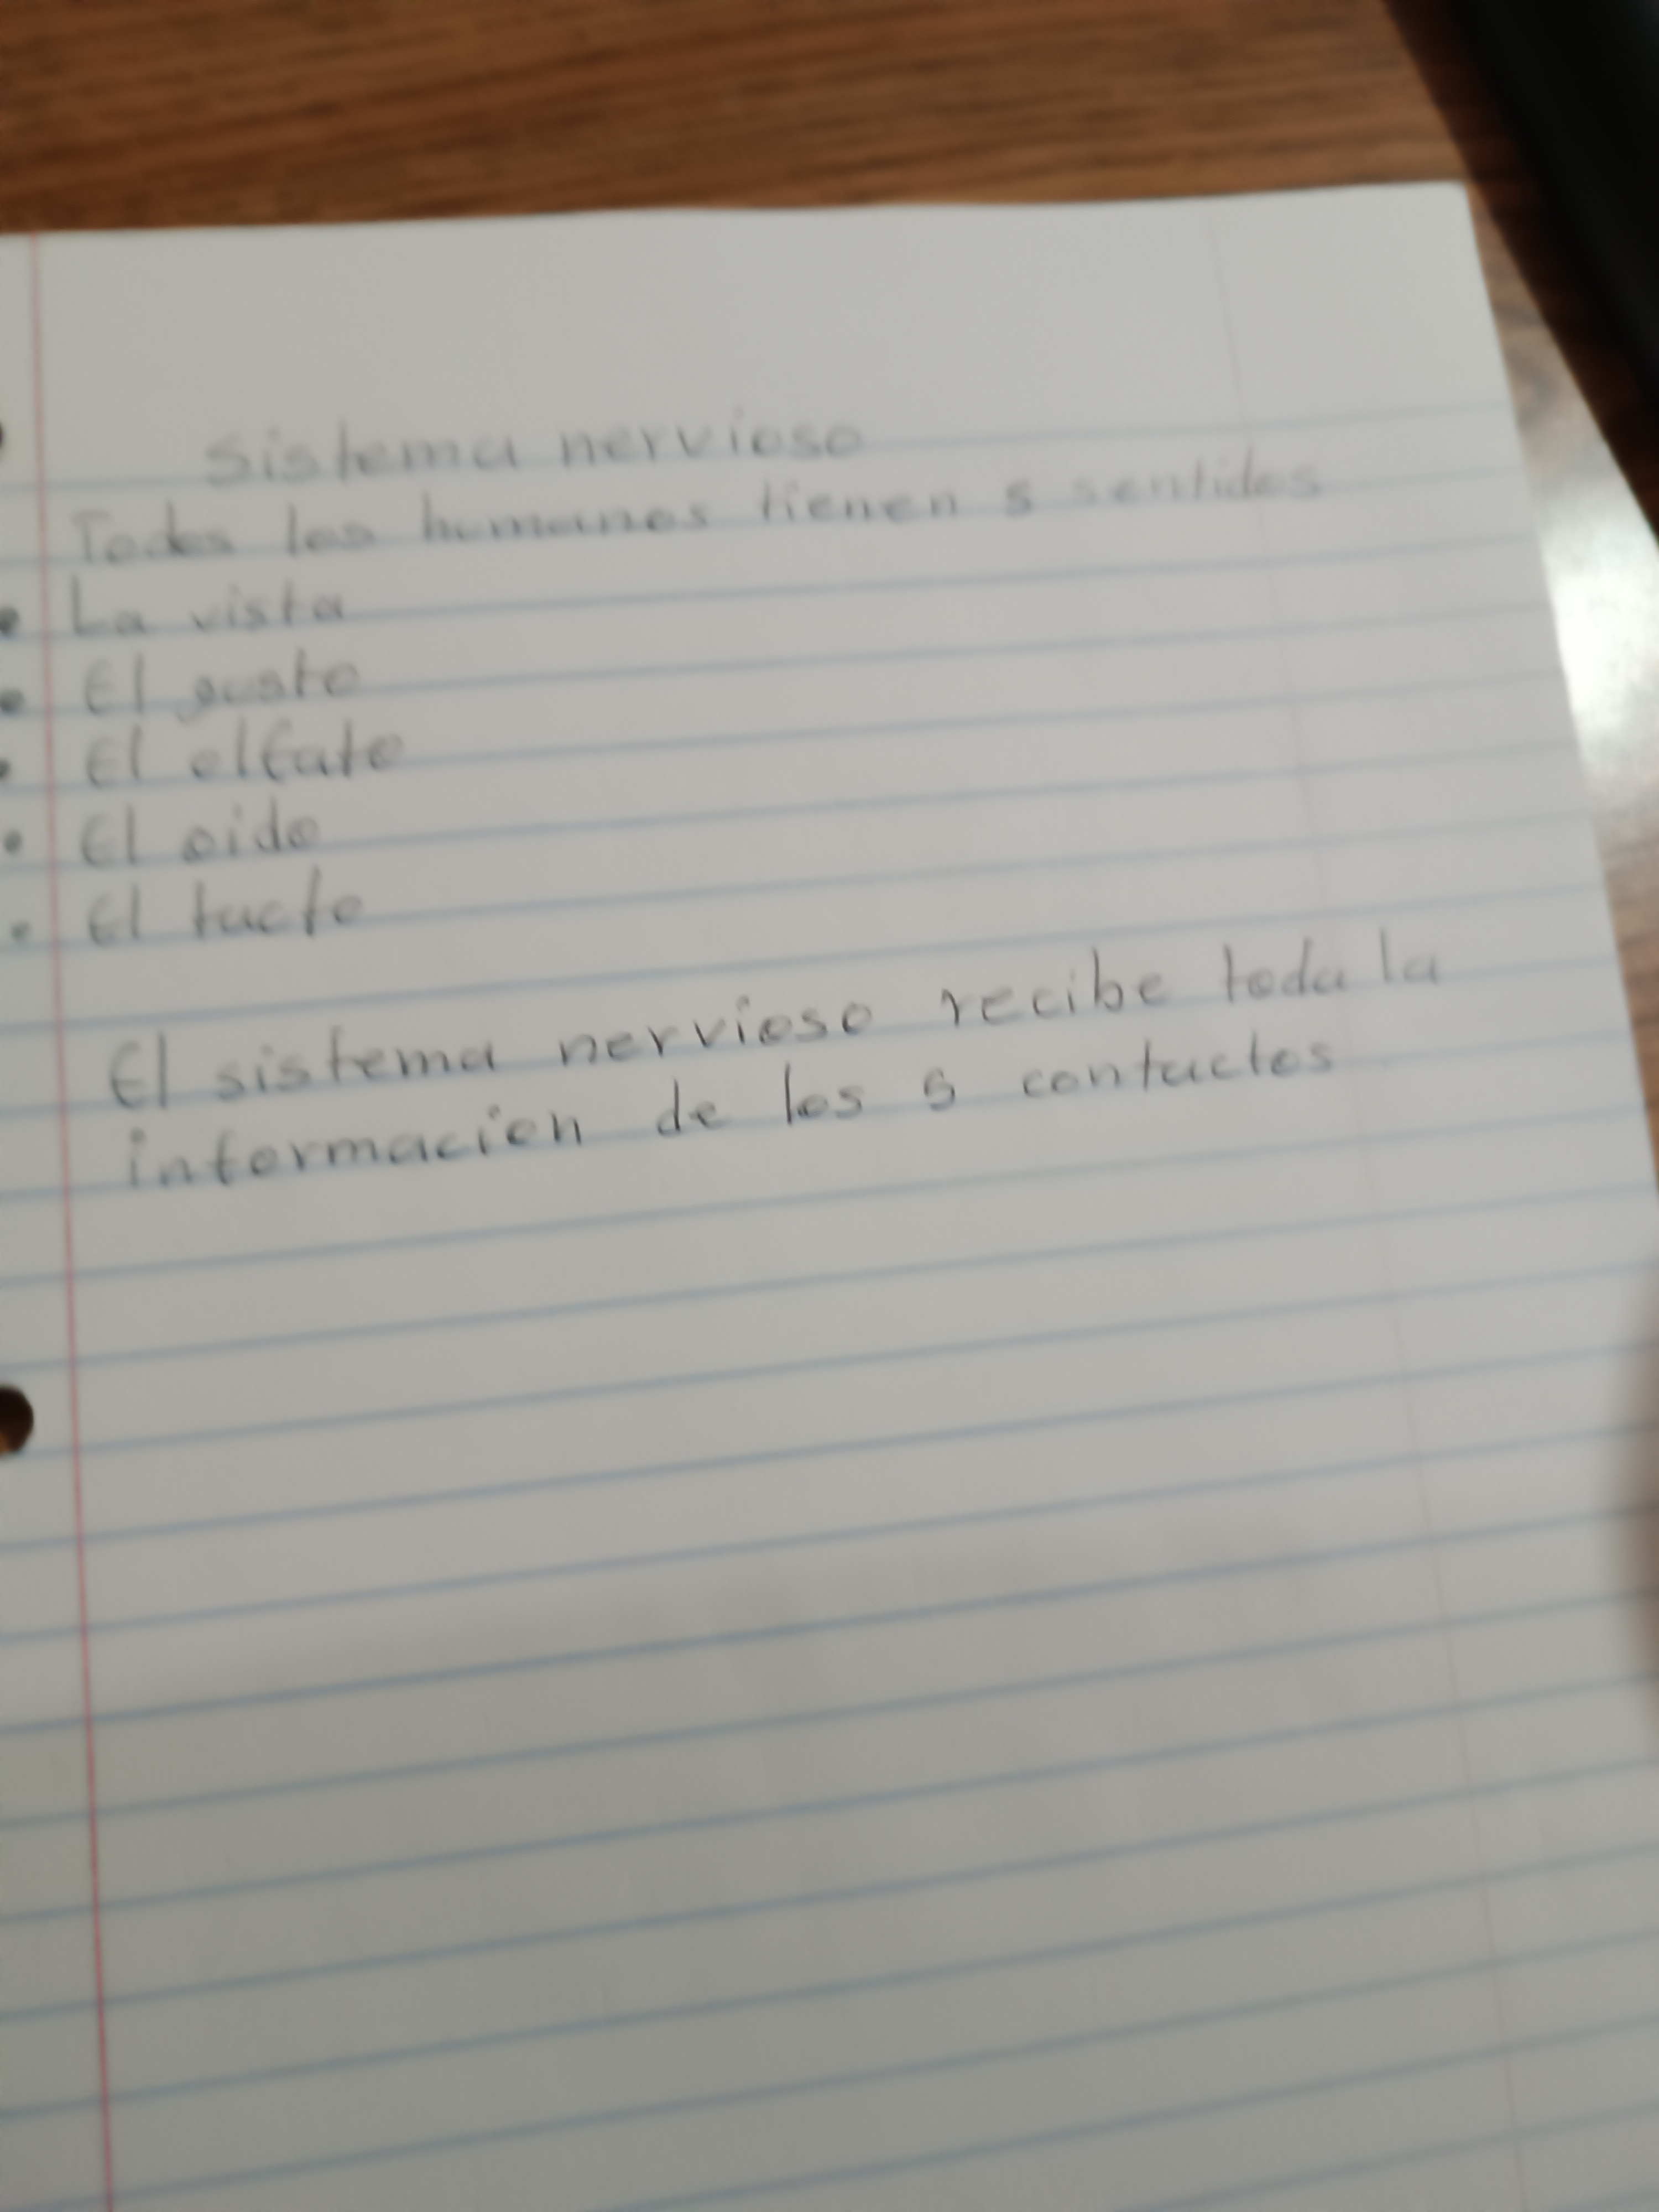 Sistema nervioso
Todos los humanos tienen 5 sentidos
• La vista
• El gusto
• El olfato
• El oido
• El tacto
El sistema nervioso recibe toda la
informacion de los 5 contactos